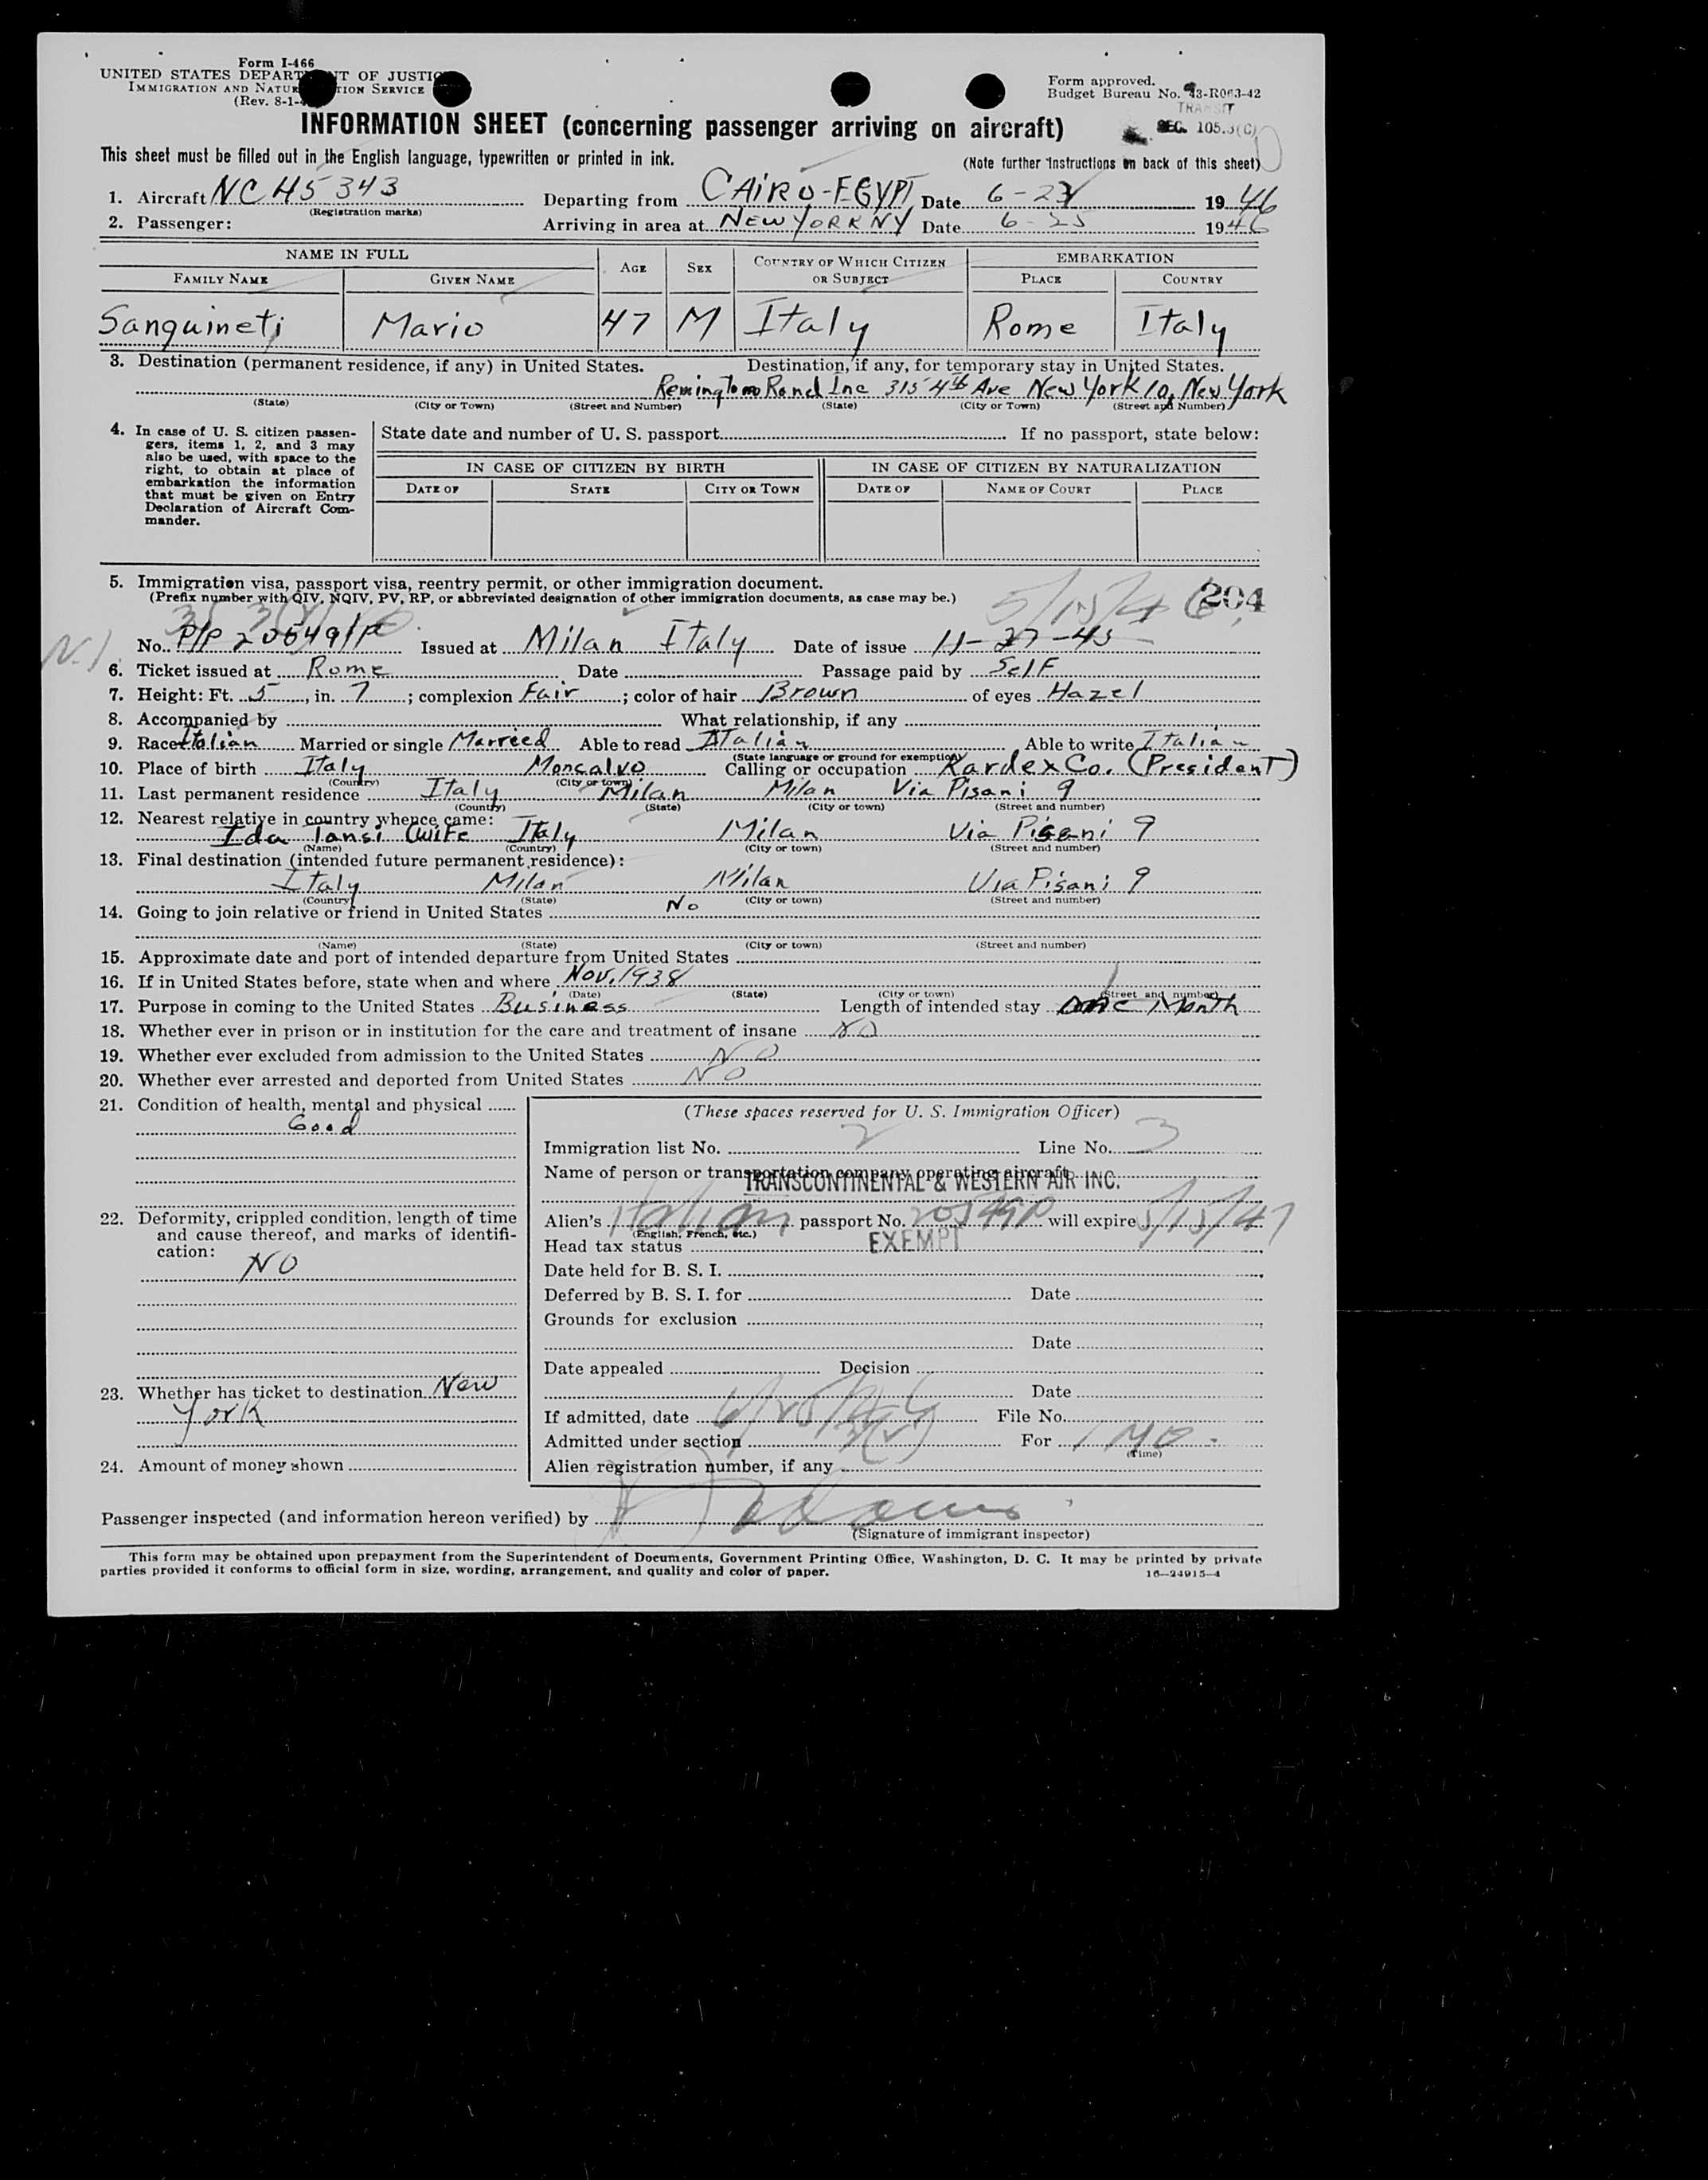 Form I-466
UNITED STATES DEPART T OF JUSTIC
IMMIGRATION AND NATUR TION SERVICE
(Rev. 8-1-
Form approved.
Budget Bureau No. 43-R063-42
TRANSIT
SEC. 105.3(C)
INFORMATION SHEET (concerning passenger arriving on aircraft)
This sheet must be filled out in the English language, typewritten or printed in ink. (Note further instructions on back of this sheet)
1. Aircraft NC 45343 Departing from CAIRO-EGYPT Date 6- 1946
(Registration marks)
2. Passenger: Arriving in area at NEW YORK NY Date 6-25 1946
NAME IN FULL AGE SEX COUNTRY OF WHICH CITIZEN OR SUBJECT EMBARKATION
FAMILY NAME GIVEN NAME PLACE COUNTRY
Sanguineti Mario 47 M Italy Rome Italy
3. Destination (permanent residence, if any) in United States. Destination, if any, for temporary stay in United States.
Remington Rand Inc 315 4th Ave New York 10, New York
(State) (City or Town) (Street and Number) (State) (City or Town) (Street and Number)
4. In case of U. S. citizen passen-
gers, items 1, 2, and 3 may
also be used, with space to the
right, to obtain at place of
embarkation the information
that must be given on Entry
Declaration of Aircraft Com-
mander.
State date and number of U. S. passport If no passport, state below:
IN CASE OF CITIZEN BY BIRTH IN CASE OF CITIZEN BY NATURALIZATION
DATE OF STATE CITY OR TOWN DATE OF NAME OF COURT PLACE
5. Immigration visa, passport visa, reentry permit, or other immigration document.
(Prefix number with QIV, NQIV, PV, RP, or abbreviated designation of other immigration documents, as case may be.)
5/15/46 204
No. P/P 20549/P Issued at Milan Italy Date of issue 11-27-45
6. Ticket issued at Rome Date Passage paid by Self
7. Height: Ft. 5, in. 7; complexion Fair; color of hair Brown of eyes Hazel
8. Accompanied by What relationship, if any
9. Race Italian Married or single Married Able to read Italian Able to write Italian
(State language or ground for exemption)
10. Place of birth Italy Moncalvo Calling or occupation Kardex Co. (President)
(Country) (City or town)
11. Last permanent residence Italy Milan Milan Via Pisani 9
(Country) (State) (City or town) (Street and number)
12. Nearest relative in country whence came:
Ida Tansi (Wife Italy Milan Via Pisani 9
(Name) (Country) (City or town) (Street and number)
13. Final destination (intended future permanent residence):
Italy Milan Milan Via Pisani 9
(Country) (State) (City or town) (Street and number)
14. Going to join relative or friend in United States No
(Name) (State) (City or town) (Street and number)
15. Approximate date and port of intended departure from United States
16. If in United States before, state when and where Nov. 1938
(Date) (State) (City or town) (Street and number)
17. Purpose in coming to the United States Business Length of intended stay One Month
18. Whether ever in prison or in institution for the care and treatment of insane NO
19. Whether ever excluded from admission to the United States NO
20. Whether ever arrested and deported from United States NO
21. Condition of health, mental and physical
Good
22. Deformity, crippled condition, length of time
and cause thereof, and marks of identifi-
cation:
NO
23. Whether has ticket to destination New
York
24. Amount of money shown
(These spaces reserved for U. S. Immigration Officer)
Immigration list No. 2 Line No. 3
Name of person or transportation company operating aircraft
TRANSCONTINENTAL & WESTERN AIR INC.
Alien's Italian passport No. 20549P will expire 5/15/47
(English, French, etc.)
Head tax status EXEMPT
Date held for B. S. I.
Deferred by B. S. I. for Date
Grounds for exclusion
Date
Date appealed Decision
Date
If admitted, date 6/25/46 File No.
Admitted under section 3(2) For 1 MO.
(Time)
Alien registration number, if any
Passenger inspected (and information hereon verified) by
(Signature of immigrant inspector)
This form may be obtained upon prepayment from the Superintendent of Documents, Government Printing Office, Washington, D. C. It may be printed by private
parties provided it conforms to official form in size, wording, arrangement, and quality and color of paper.
16—24915-4